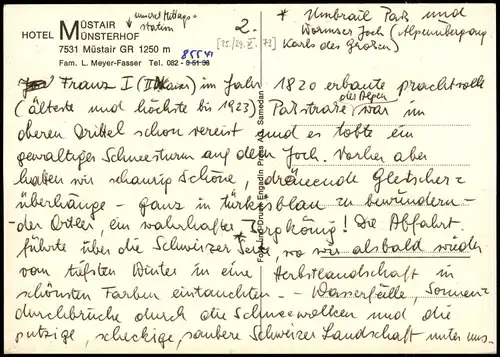 unsere Mittags-
station
HOTEL MÜSTAIR
MÜNSTERHOF
7531 Müstair GR 1250 m
Fam. L. Meyer-Fasser Tel. 082 - 8 51 38
85541
2.
[25./29. 73]
* Umbrail Paß und
Wormser Joch (Alpenübergang
Karls des Großen)
Franz I (II Kaiser) im Jahr 1820 erbaute prachtvolle
(älteste und höchste bis 1923) Paßstraße der Alpen war im
oberen Drittel schon vereist und es tobte ein
gewaltiger Schneesturm auf dem Joch. Vorher aber
hatten wir schaurig Schöne, dräuende Gletscher=
überhänge - ganz in türkisblau zu bewundern -
- der Ortler, ein wahrhafter Bergkönig! Die Abfahrt
führte über die Schweizer * Seite, wo wir alsbald wieder
vom tiefsten Winter in eine Herbstlandschaft in
schönsten Farben eintauchten. - Wasserfälle, Sonnen=
durchbrüche durch die Schneewolken und die
putzige, scheckige, saubere Schweizer Landschaft unter uns.
Foto und Druck Engadin Press AG Samedan